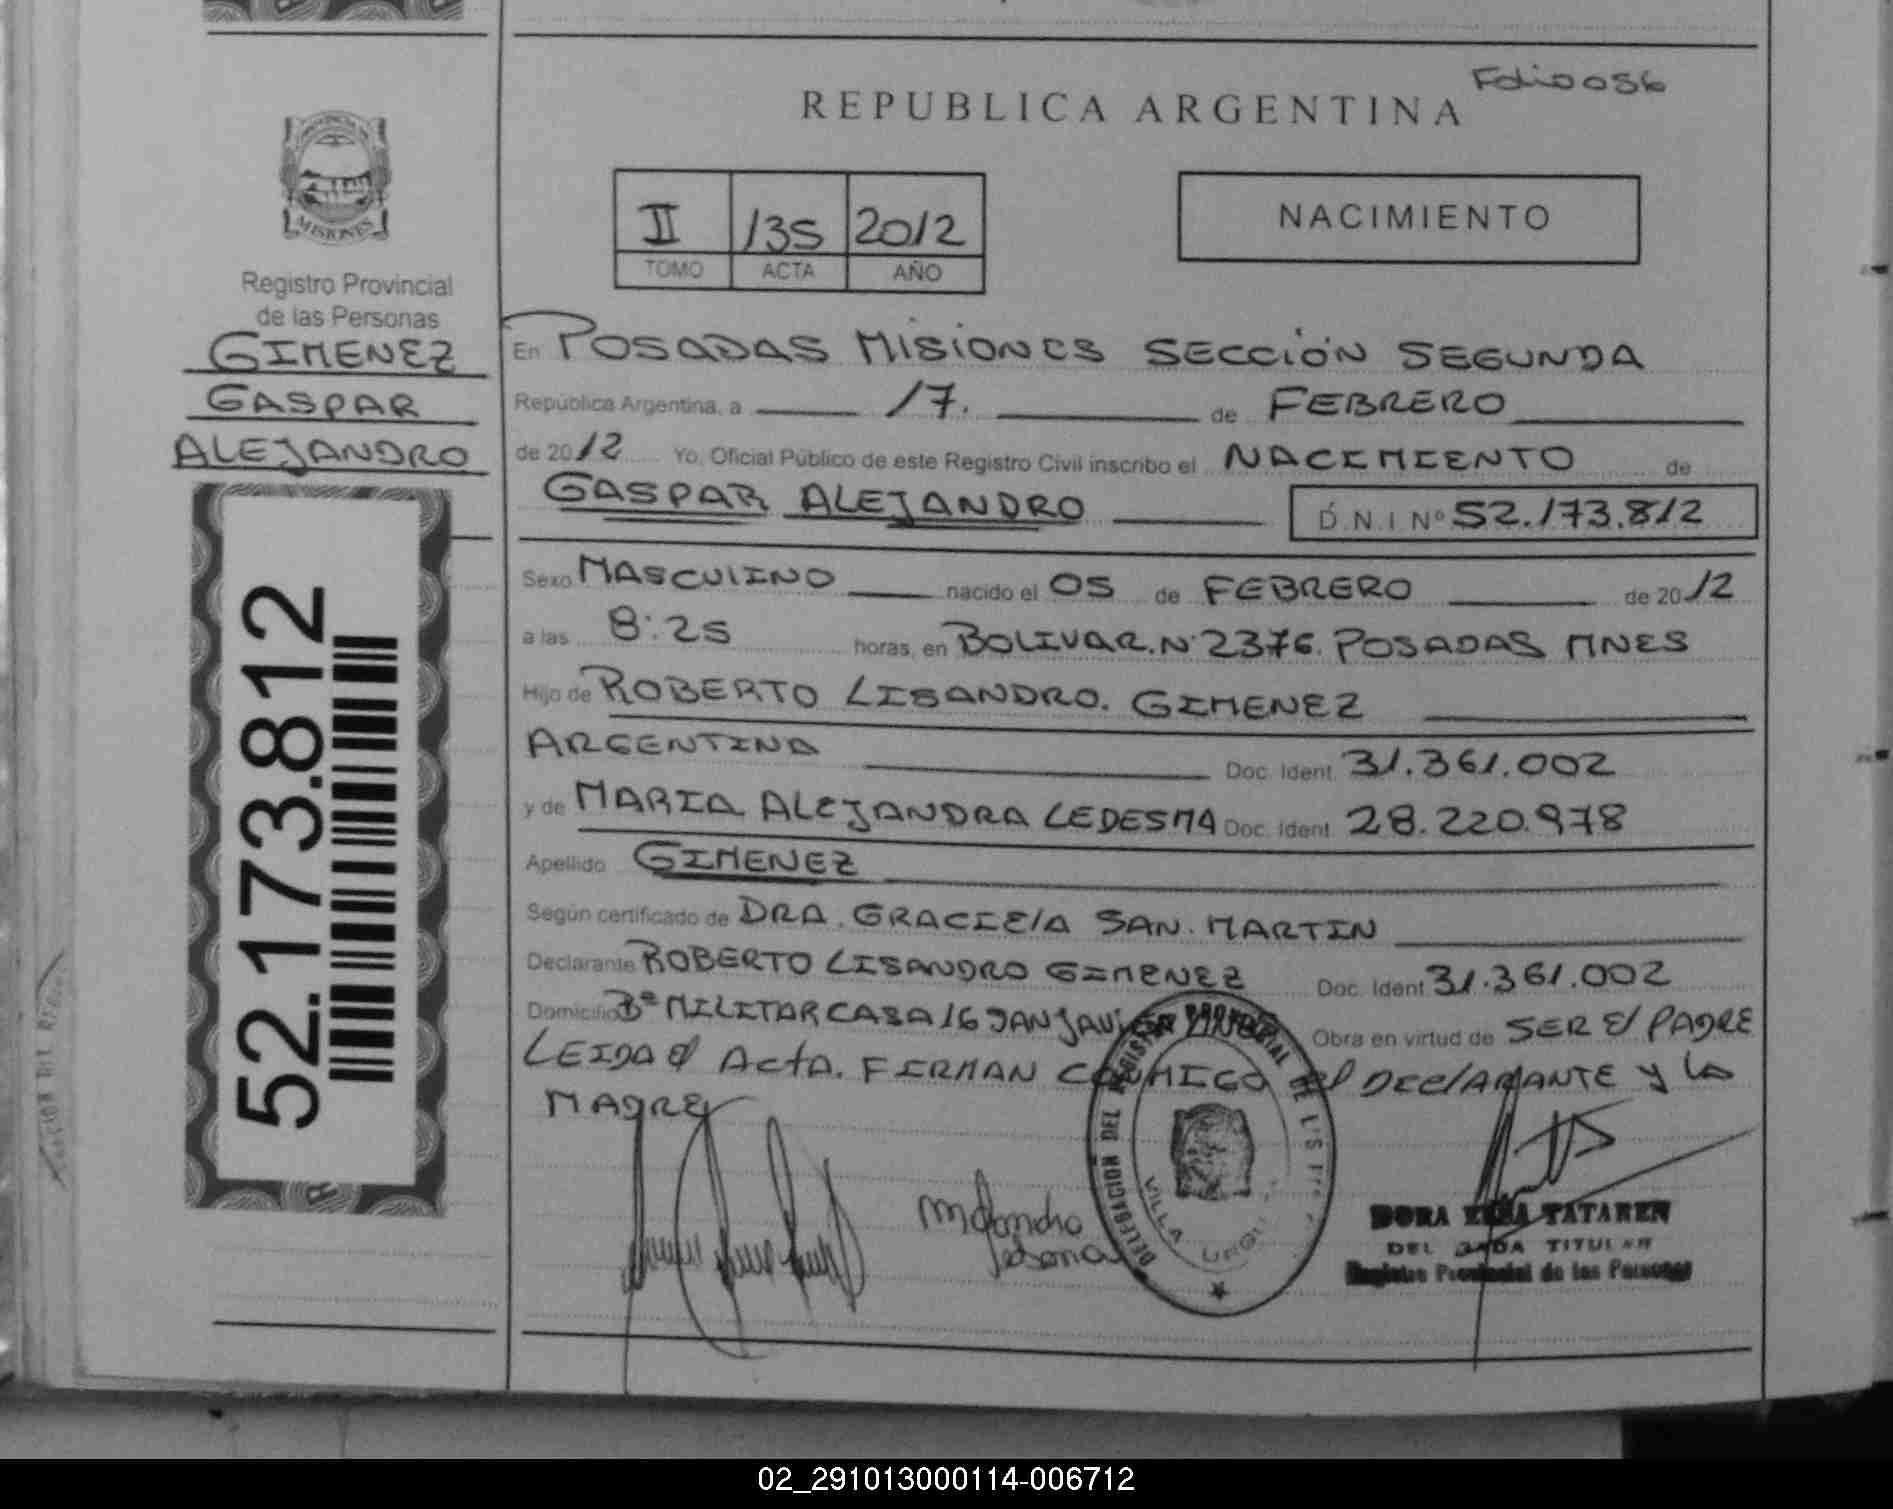 Folio 056
REPUBLICA ARGENTINA
PROVINCIA DE
MISIONES
Registro Provincial
de las Personas
GIMENEZ
GASPAR
ALEJANDRO
52.173.812
II 135 2012
TOMO ACTA AÑO
NACIMIENTO
En POSADAS MISIONES SECCIÓN SEGUNDA
República Argentina, a 17. de FEBRERO
de 2012 Yo, Oficial Público de este Registro Civil inscribo el NACIMIENTO de
GASPAR ALEJANDRO D.N.I Nº 52.173.812
Sexo MASCULINO nacido el 05 de FEBRERO de 2012
a las 8:25 horas, en BOLIVAR. Nº 2376. POSADAS MNES
Hijo de ROBERTO LISANDRO. GIMENEZ
ARGENTINA Doc. Ident. 31.361.002
y de MARIA ALEJANDRA LEDESMA Doc. Ident. 28.220.978
Apellido GIMENEZ
Según certificado de DRA. GRACIELA SAN. MARTIN
Declarante ROBERTO LISANDRO GIMENEZ Doc. Ident. 31.361.002
Domicilio Bº MILITAR CASA 16 Obra en virtud de SER El PADRE
LEIDA El ActA. FIRMAN CONMIGO El DEClARANTE y LA
MADRE
DELEGACION DEL REGISTRO PROVINCIAL DE
VILLA
DORA TATAREN
TITULAR
Registro Provincial de las Personas
02_291013000114-006712